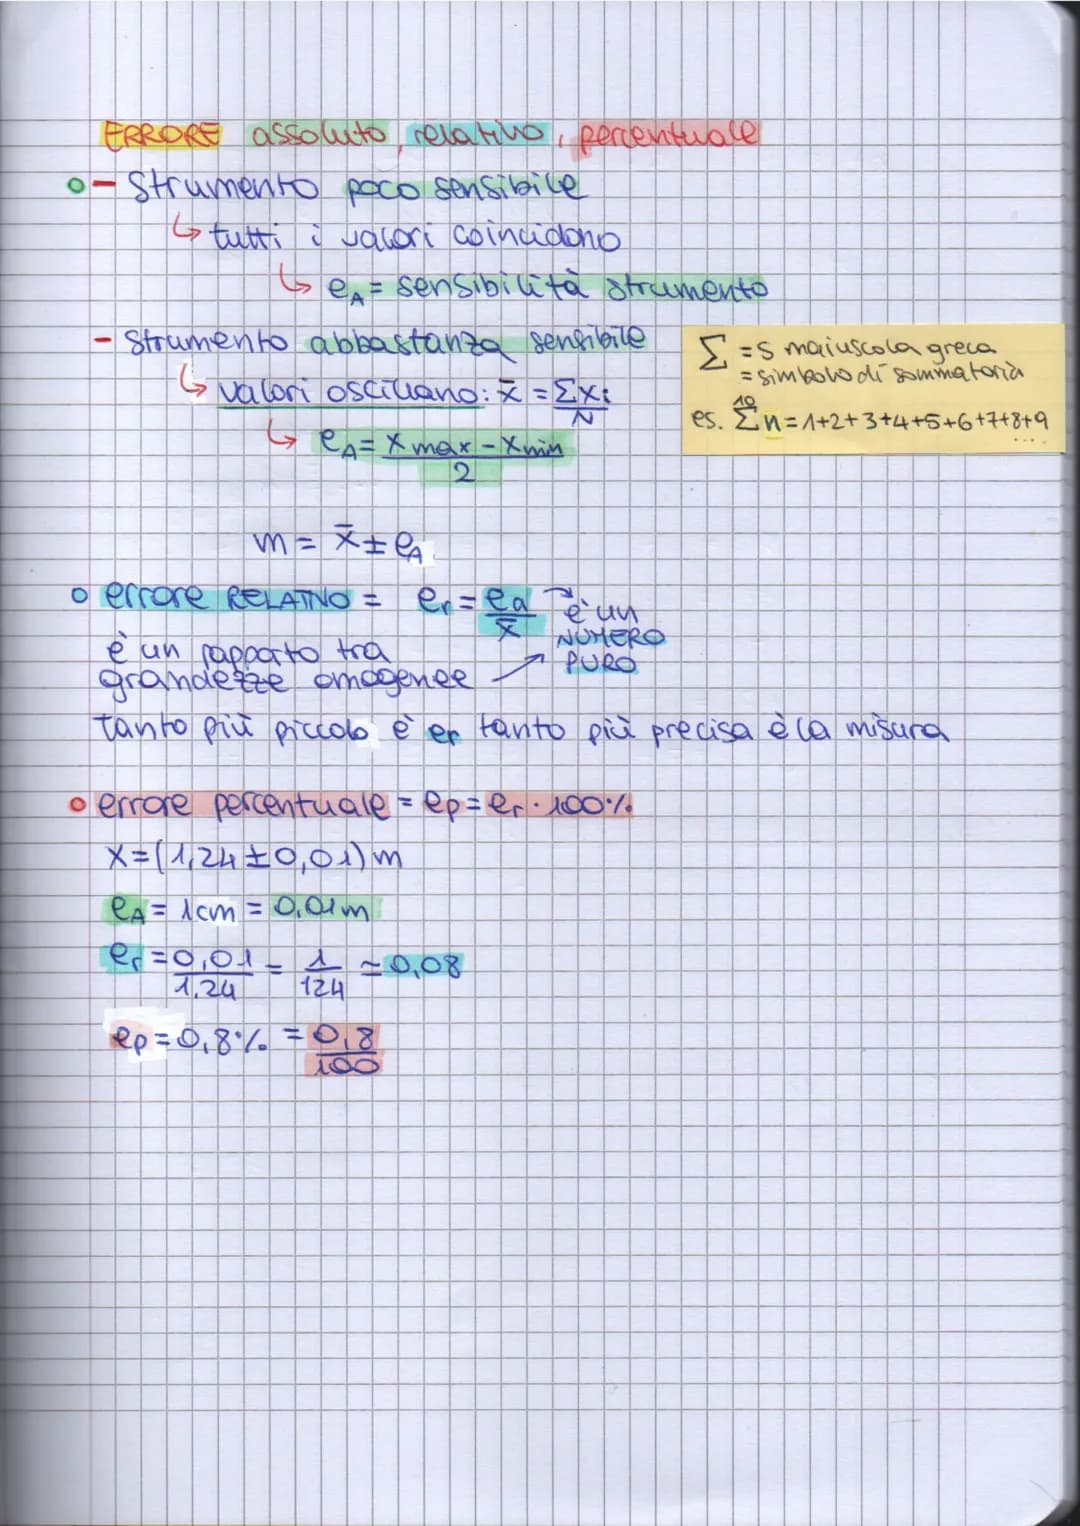 ERRORE assoluto, relativo, percentuale
- Strumento poco sensibile
↳ tutti i valori coincidono
↳ eA = sensibilità strumento
- Strumento abbastanza sensibile
↳ valori oscillano: x̄ = Σxi / N
↳ eA = x max - x min / 2
Σ = S maiuscola greca
= simbolo di sommatoria
es. Σ¹⁰ n = 1+2+3+4+5+6+7+8+9 ....
m = x̄ ± eA
errore RELATIVO = er = ea / x̄ → è un NUMERO PURO
è un rapporto tra
grandezze omogenee ↗
tanto più piccolo è er tanto più precisa è la misura
errore percentuale = ep = er · 100%
x = (1,24 ± 0,01) m
eA = 1cm = 0,01m
er = 0,01 / 1,24 = 1 / 124 ≃ 0,08
ep = 0,8% = 0,8 / 100